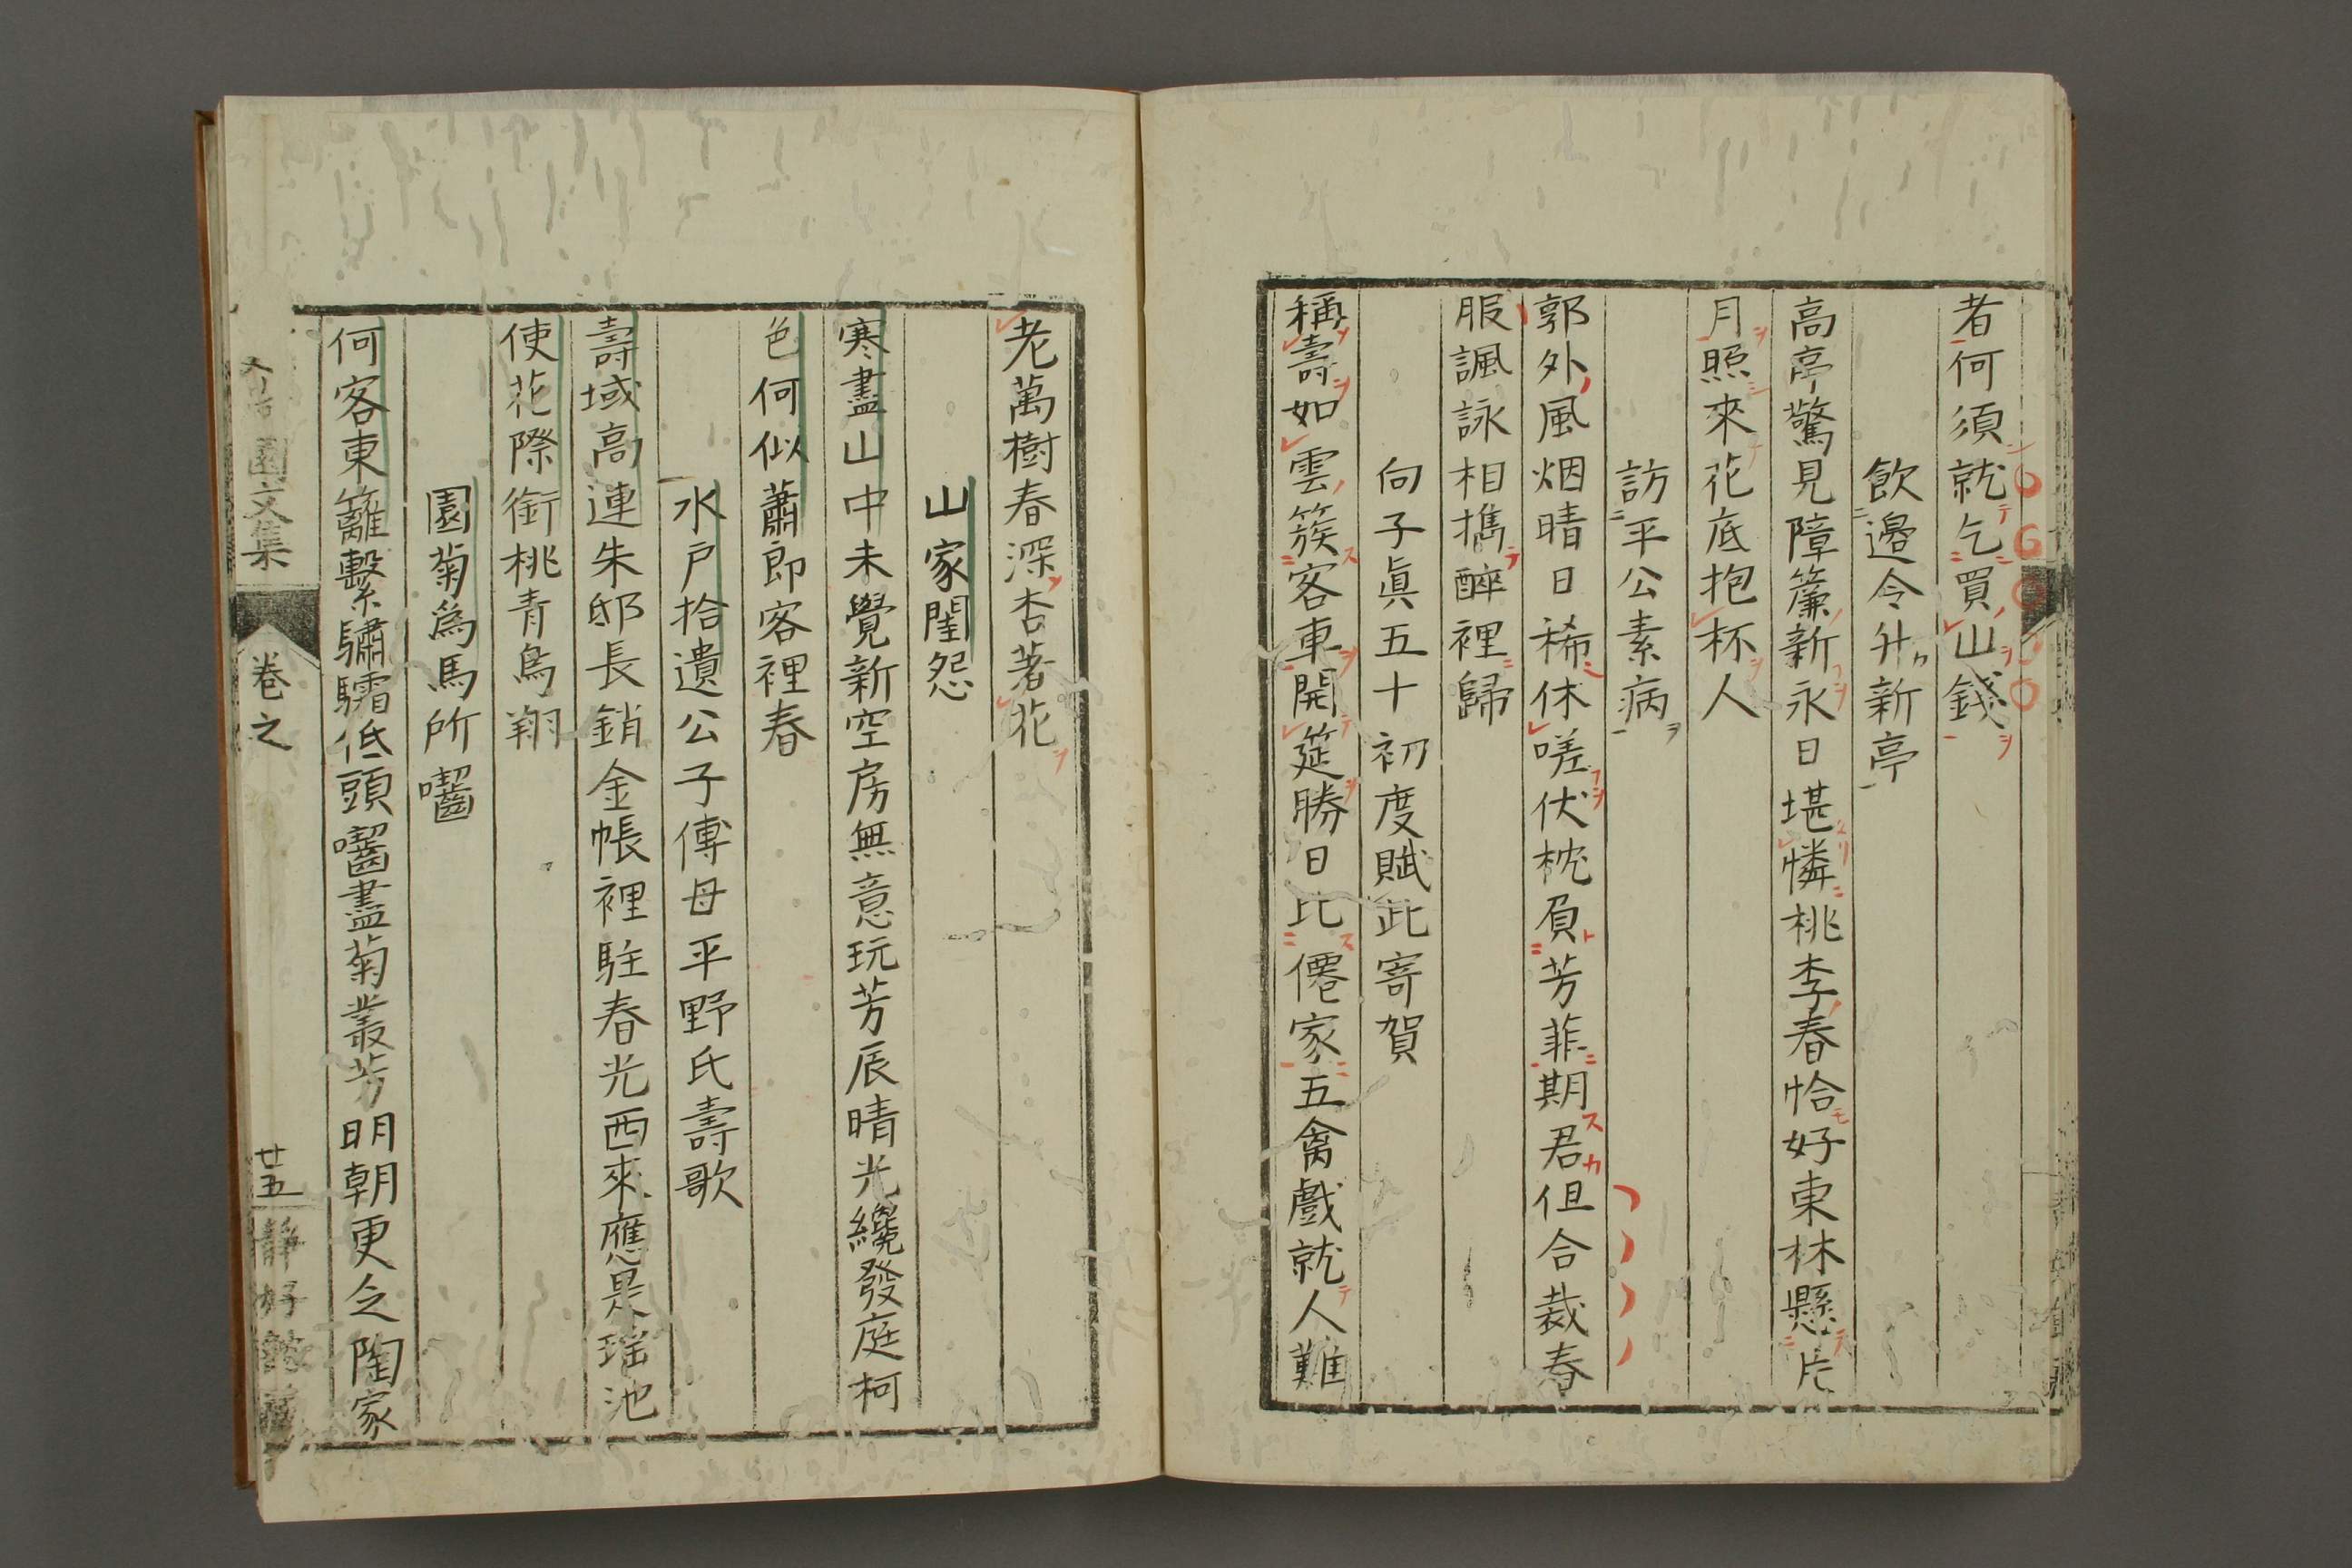 者何須就乞買山錢
飲邉令升新亭
高亭驚見障簾新永日堪憐桃李春恰好東林懸片
月照來花底抱杯人
訪平公素病
郭外風烟晴日稀休嗟伏枕負芳菲期君但合裁春
服諷詠相擕醉裡歸
向子眞五十初度賦此寄賀
稱壽如雲簇客車開筵勝日比僊家五禽戲就人難
老萬樹春深杏著花
山家閨怨
寒盡山中未覺新空房無意玩芳辰晴光纔發庭柯
色何似蕭郎客裡春
水戶拾遺公子傅母平野氏壽歌
壽域高連朱邸長銷金帳裡駐春光西來應是瑶池
使花際銜桃青鳥翔
園菊爲馬所囓
何客東籬繫驌驦低頭囓盡菊叢芳明朝更令陶家
園文集
卷之
廿五
靜好